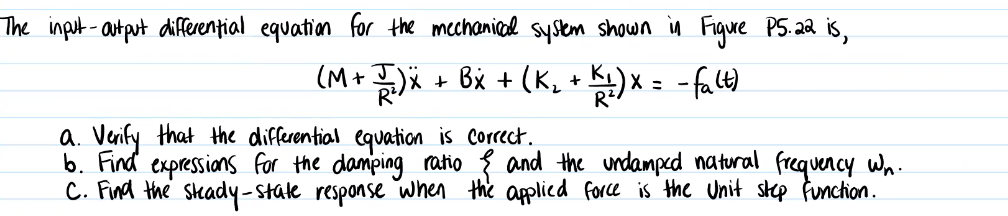 The input-output differential equation for the mechanical system shown in Figure P5.22 is,
(M + J/R²)ẍ + Bẋ + (K₂ + K₁/R²)x = -fa(t)
a. Verify that the differential equation is correct.
b. Find expressions for the damping ratio ζ and the undamped natural frequency ωn.
C. Find the steady-state response when the applied force is the unit step function.